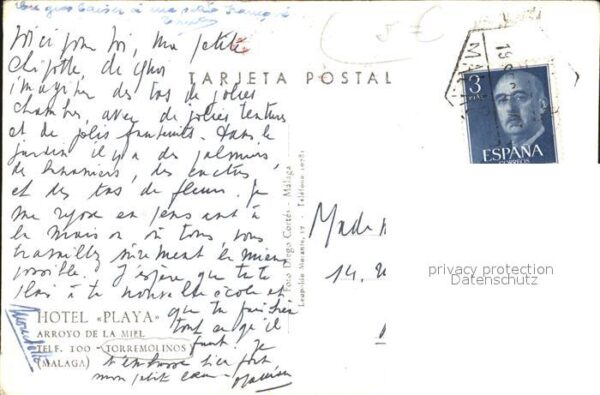 un gros baiser à
TARJETA POSTAL
5 €
3
PTAS
ESPAÑA
CORREOS
Voici pour toi, ma petite
Chipotte, de quoi
imaginer des tas de jolies
chambres, avec de jolies tentures
et de jolis fauteuils. Dans le
jardin il y a des palmiers,
de bananiers, des cactus
et des tas de fleurs. Je
me repose en pensant à
la maison où tous vous
travaillez sûrement le mieux
possible. J'espère que tu te
plais à ta nouvelle école et
que tu fais bien
tout ce qu'il
faut. Je
t'embrasse bien fort
mon petit cœur
HOTEL «PLAYA»
ARROYO DE LA MIEL
TELF. 100 - TORREMOLINOS
(MALAGA)
Foto Diego Cortés - Málaga
Teléfono
14,
privacy protection
Datenschutz